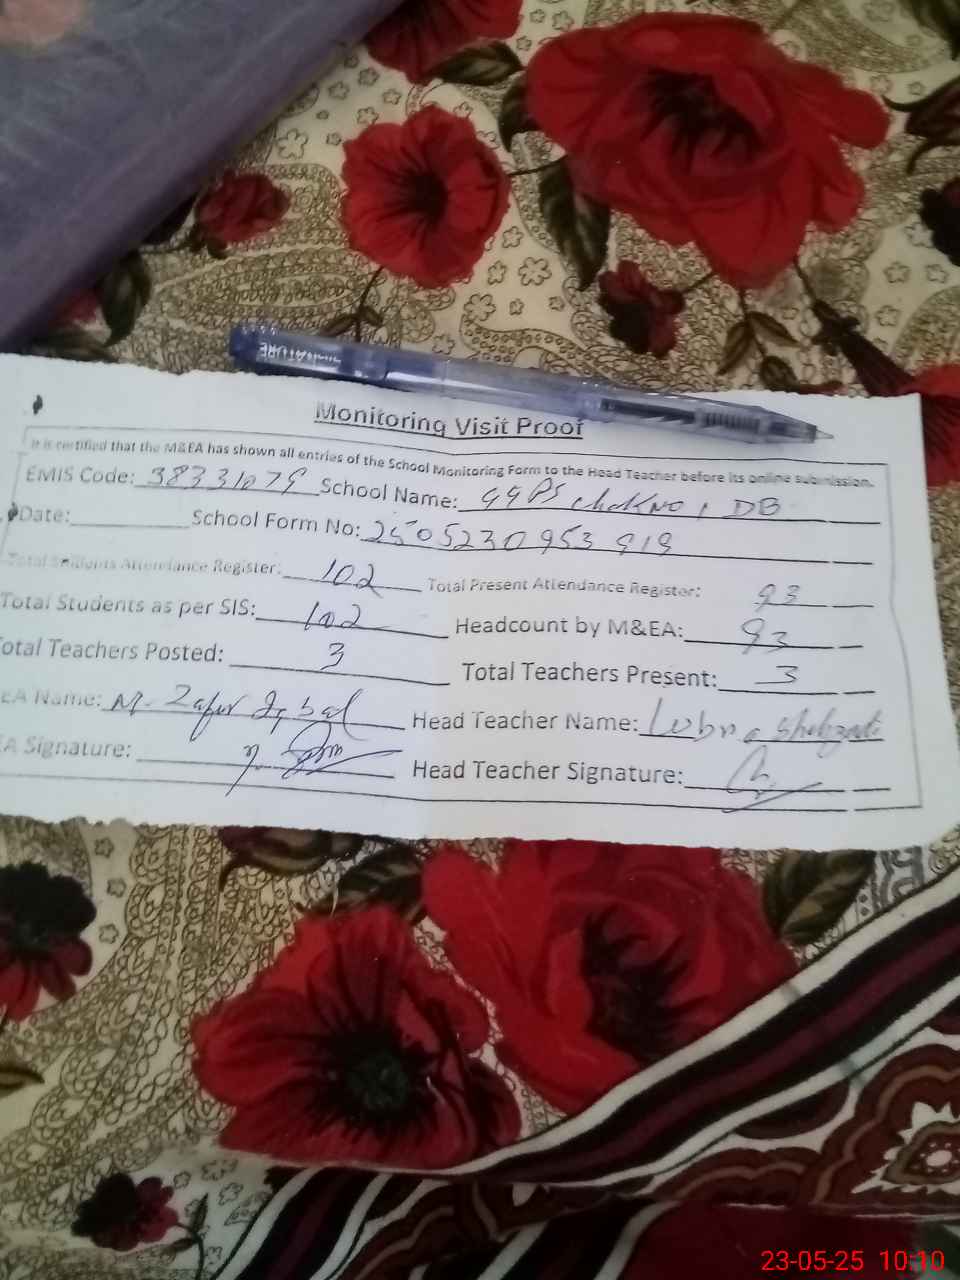 SIGNATURE
Monitoring Visit Proof
It is certified that the M&EA has shown all entries of the School Monitoring Form to the Head Teacher before its online submission.
EMIS Code: 38331079 School Name: GGPS Chak No 1 DB
Date: School Form No: 2505230953919
Total Students Attendance Register: 102 Total Present Attendance Register: 93
Total Students as per SIS: 102 Headcount by M&EA: 93
Total Teachers Posted: 3 Total Teachers Present: 3
EA Name: M. Zafar Iqbal Head Teacher Name: Lubna Shahzadi
EA Signature: Head Teacher Signature:
23-05-25 10:10